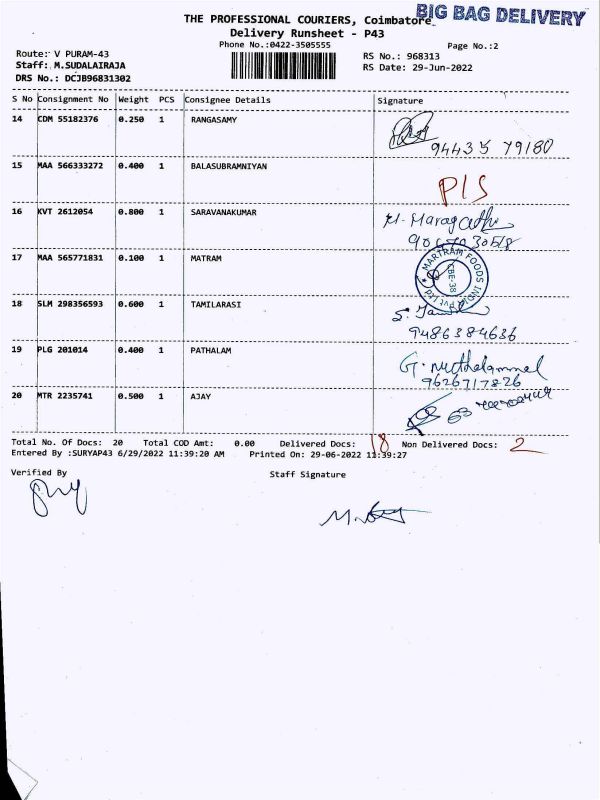 BIG BAG DELIVERY
THE PROFESSIONAL COURIERS, Coimbatore
Delivery Runsheet - P43
Phone No.:0422-3505555
Page No.:2
Route: V PURAM-43
RS No.: 968313
Staff: M.SUDALAIRAJA
RS Date: 29-Jun-2022
DRS No.: DCJB96831302
S No Consignment No Weight PCS Consignee Details Signature
14 CDM 55182376 0.250 1 RANGASAMY
94435 79180
15 MAA 566333272 0.400 1 BALASUBRAMNIYAN
P/S
16 KVT 2612054 0.800 1 SARAVANAKUMAR
17 MAA 565771831 0.100 1 MATRAM
MARTRAM FOODS INDIA Pvt Ltd
CBE-38
18 SLM 298356593 0.600 1 TAMILARASI
9486384636
19 PLG 201014 0.400 1 PATHALAM
9626717826
20 MTR 2235741 0.500 1 AJAY
Total No. Of Docs: 20 Total COD Amt: 0.00 Delivered Docs: 18 Non Delivered Docs: 2
Entered By :SURYAP43 6/29/2022 11:39:20 AM Printed On: 29-06-2022 11:39:27
Verified By Staff Signature